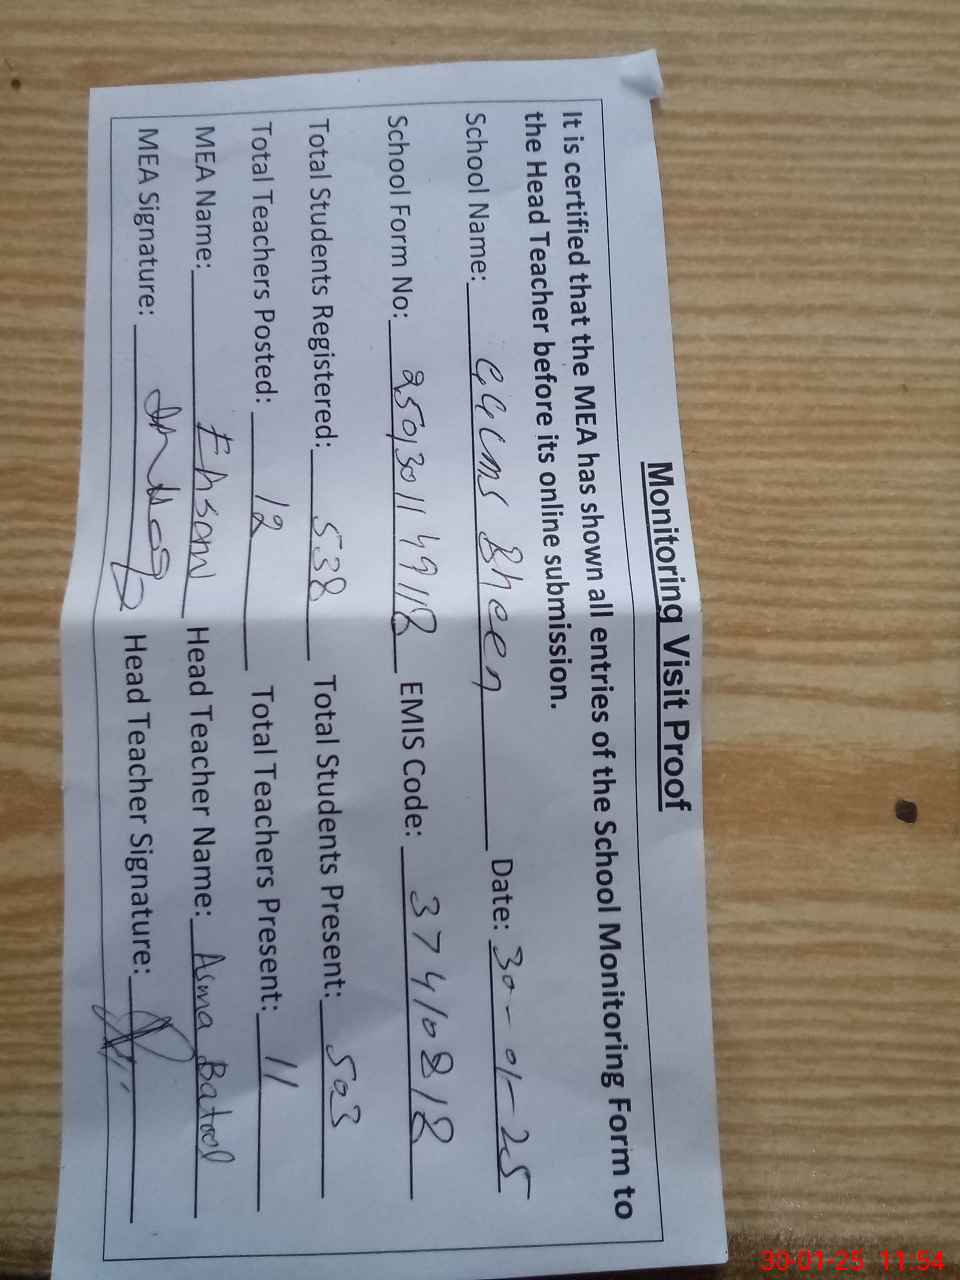 Monitoring Visit Proof
It is certified that the MEA has shown all entries of the School Monitoring Form to
the Head Teacher before its online submission.
School Name: GGCMS Bheen Date: 30-01-25
School Form No: EMIS Code: 37410818
Total Students Registered: 538 Total Students Present: 503
Total Teachers Posted: 12 Total Teachers Present: 11
MEA Name: Ehsan Head Teacher Name: Asma Batool
MEA Signature: Head Teacher Signature:
30-01-25 11:54